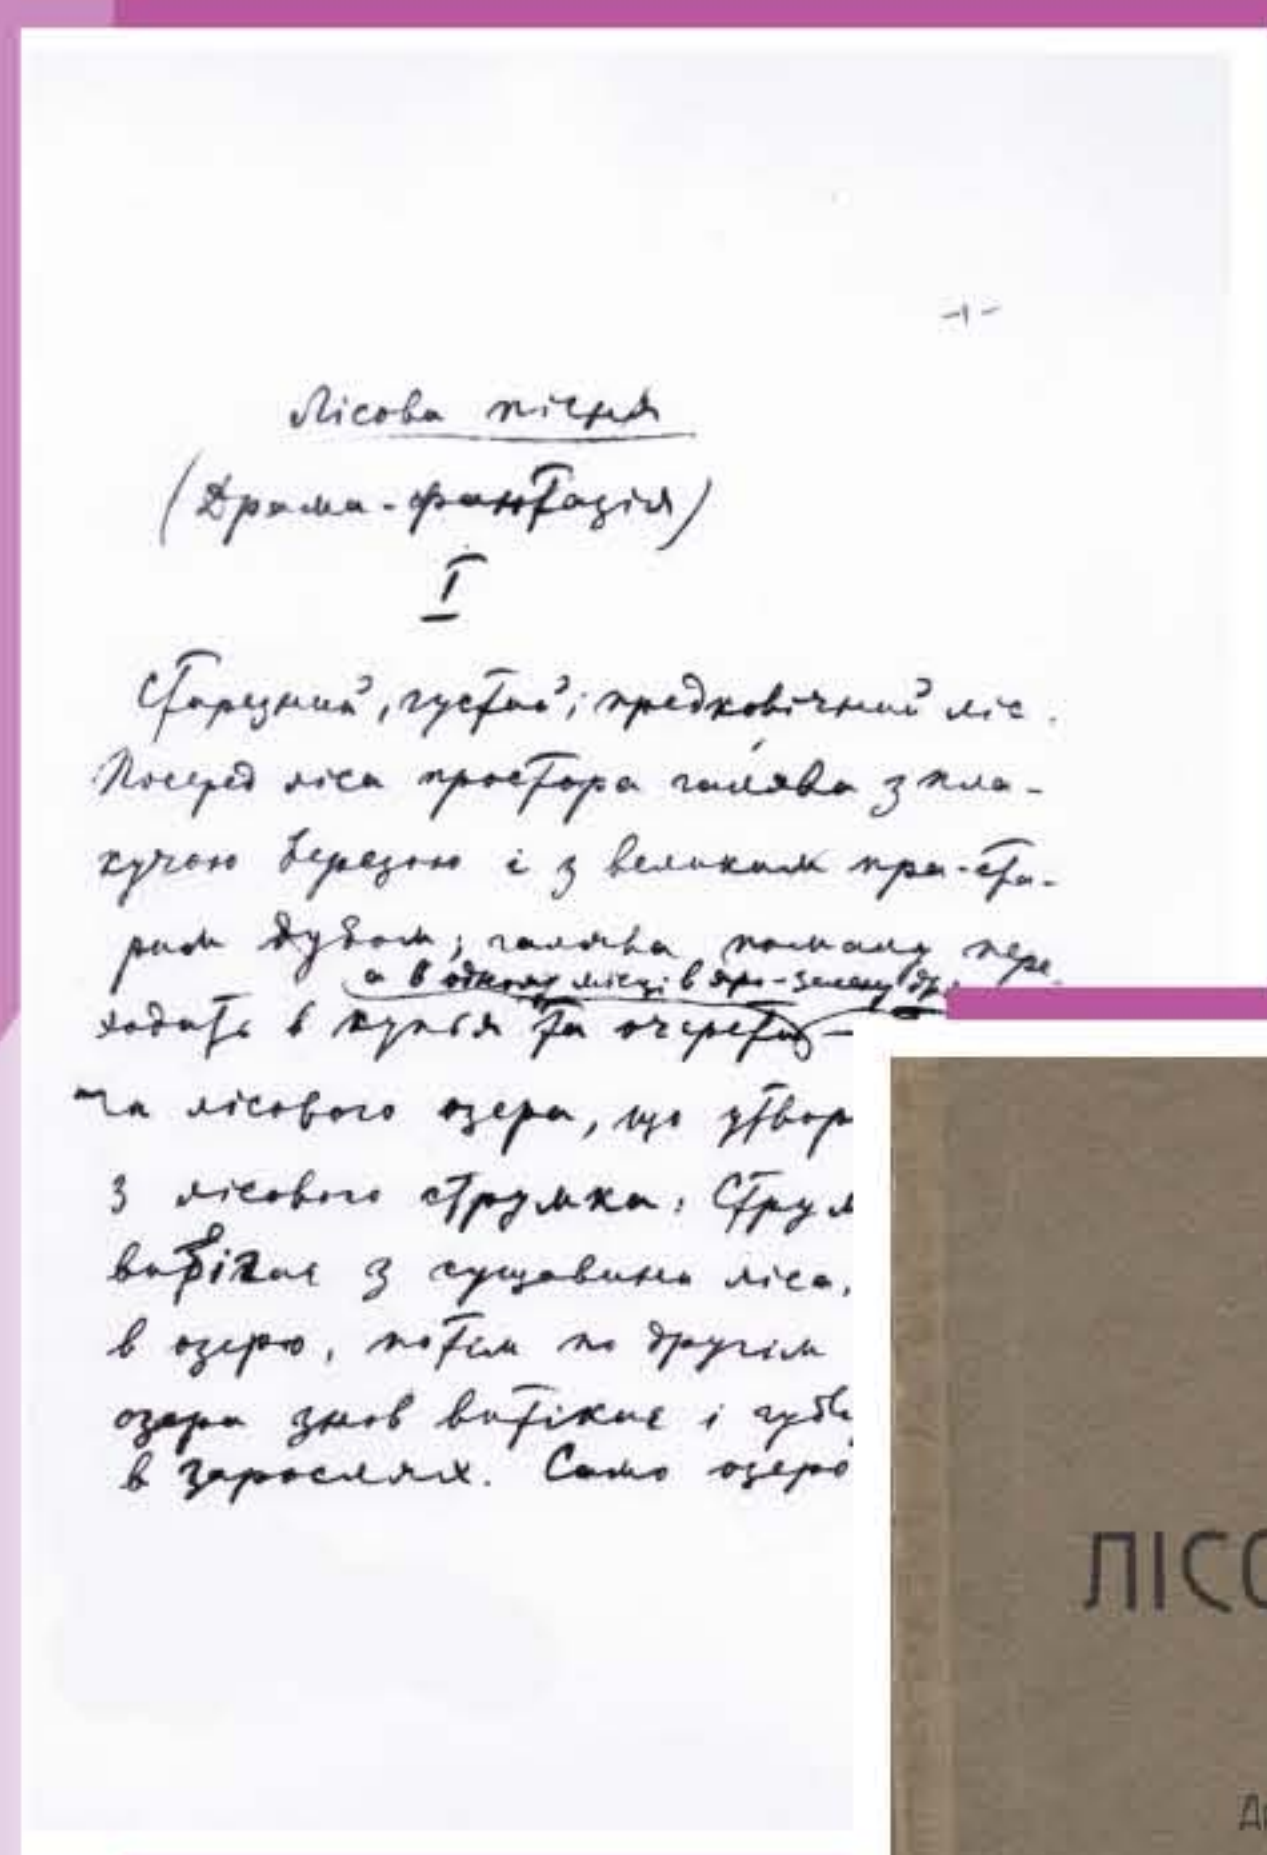 -1-
Лісова пісня
(Драма-фантазія)
I
Старезний, густий, предковічний ліс.
Посеред ліса простора галява з пла-
кучою березою і з великим пра-ста-
рим дубом; галява помалу пере-
а в одному місці в яро-зелену
ходить в купья та очерети –
га лісового озера, що утвор
з лісового струмка. Струм
вибігає з гущавини ліса,
в озеро, потім по другім
озера знов витікає і губи
в зарослях. Само озеро
ЛІСО